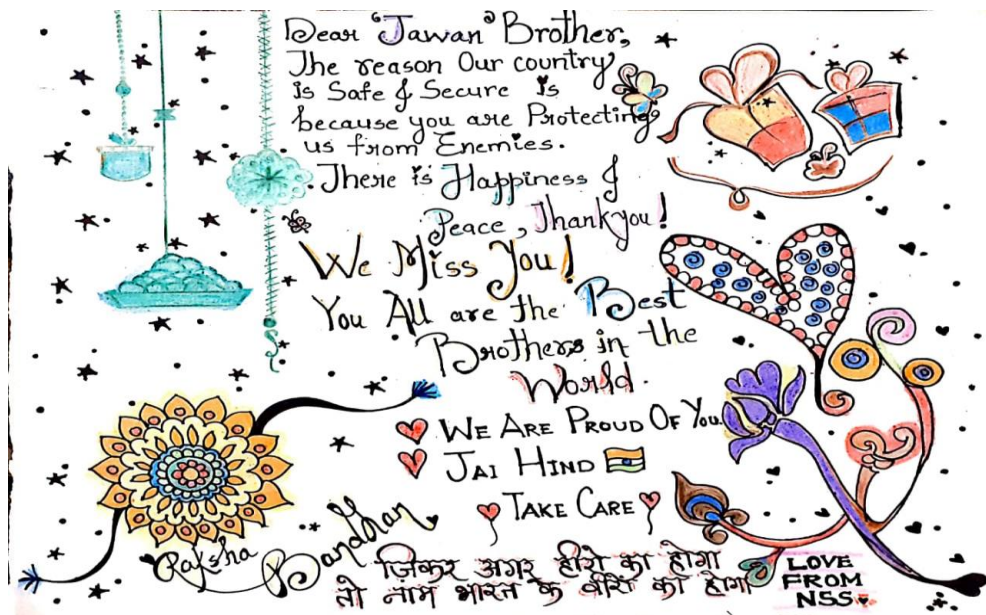 Dear 'Jawan' Brother,
The reason Our country
is Safe & Secure is
because you are Protecting
us from Enemies.
There is Happiness &
Peace, Thankyou!
We Miss You!
You All are the Best
Brothers in the
World.
WE ARE PROUD OF YOU.
JAI HIND
TAKE CARE
Raksha Bandhan
ज़िकर अगर हीरो का होगा
तो नाम भारत के वीरों का होगा
LOVE
FROM
NSS.